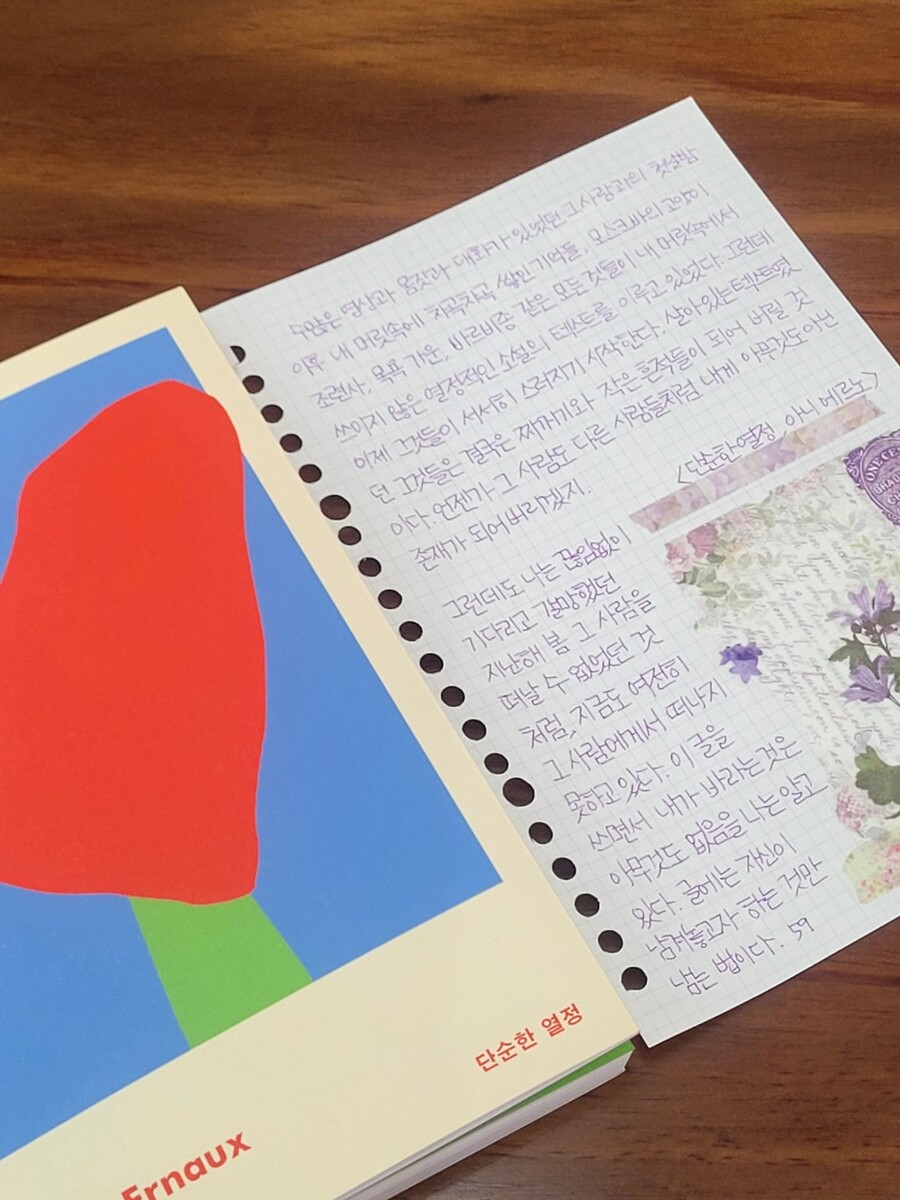 수많은 영상과 몸짓과 대화가 있었던 그 사람과의 첫날밤
이후 내 머릿속에 차곡차곡 쌓인 기억들, 모스크바의 고양이
조련사, 목욕 가운, 바르비종 같은 모든 것들이 내 머릿속에서
쓰이지 않은 열정적인 소설의 텍스트를 이루고 있었다. 그런데
이제 그것들이 서서히 스러지기 시작한다. 살아있는 텍스트였
던 그것들은 결국은 찌꺼기와 작은 흔적들이 되어 버릴 것
이다. 언젠가 그 사람도 다른 사람들처럼 내게 아무것도 아닌
존재가 되어버리겠지.
<단순한 열정, 아니 에르노>
그런데도 나는 끊임없이
기다리고 갈망했던
지난해 봄 그 사람을
떠날 수 없었던 것
처럼, 지금도 여전히
그 사람에게서 떠나지
못하고 있다. 이 글을
쓰면서 내가 바라는 것은
아무것도 없음을 나는 알고
있다. 글에는 자신이
남겨놓고자 하는 것만
남는 법이다. 59
ONE CE
단순한 열정
Ernaux